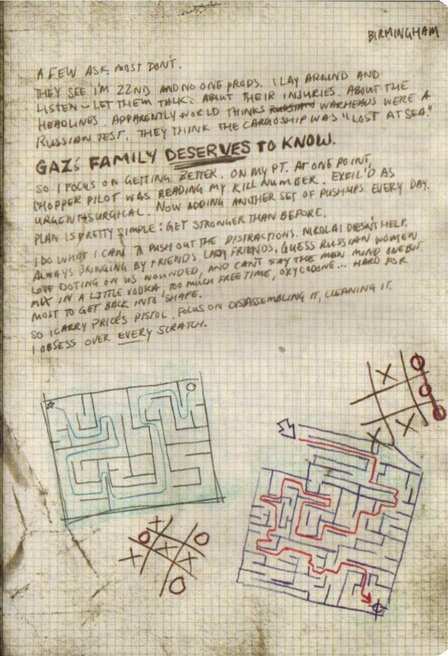 BIRMINGHAM
A FEW ASK. MOST DON'T.
THEY SEE I'M 22ND AND NO ONE PRODS. I LAY AROUND AND
LISTEN - LET THEM TALK: ABOUT THEIR INJURIES. ABOUT THE
HEADLINES. APPARENTLY WORLD THINKS RUSSIAN WARHEADS WERE A
RUSSIAN TEST. THEY THINK THE CARGOSHIP WAS "LOST AT SEA."
GAZ'S FAMILY DESERVES TO KNOW.
SO I FOCUS ON GETTING BETTER. ON MY PT. AT ONE POINT,
CHOPPER PILOT WAS READING MY KILL NUMBER. EXFIL'D AS
URGENT SURGICAL. NOW ADDING ANOTHER SET OF PUSHUPS EVERY DAY.
PLAN IS PRETTY SIMPLE: GET STRONGER THAN BEFORE.
I DO WHAT I CAN TO PUSH OUT THE DISTRACTIONS. NIKOLAI DOESN'T HELP.
ALWAYS BRINGING BY FRIENDS. LADY FRIENDS. GUESS RUSSIAN WOMEN
LOVE DOTING ON US WOUNDED, AND CAN'T SAY THE MEN MIND ONE BIT.
MIX IN A LITTLE VODKA, TOO MUCH FREE TIME, OXYCODONE... HARD FOR
MOST TO GET BACK INTO SHAPE.
SO I CARRY PRICE'S PISTOL. FOCUS ON DISASSEMBLING IT, CLEANING IT.
I OBSESS OVER EVERY SCRATCH.